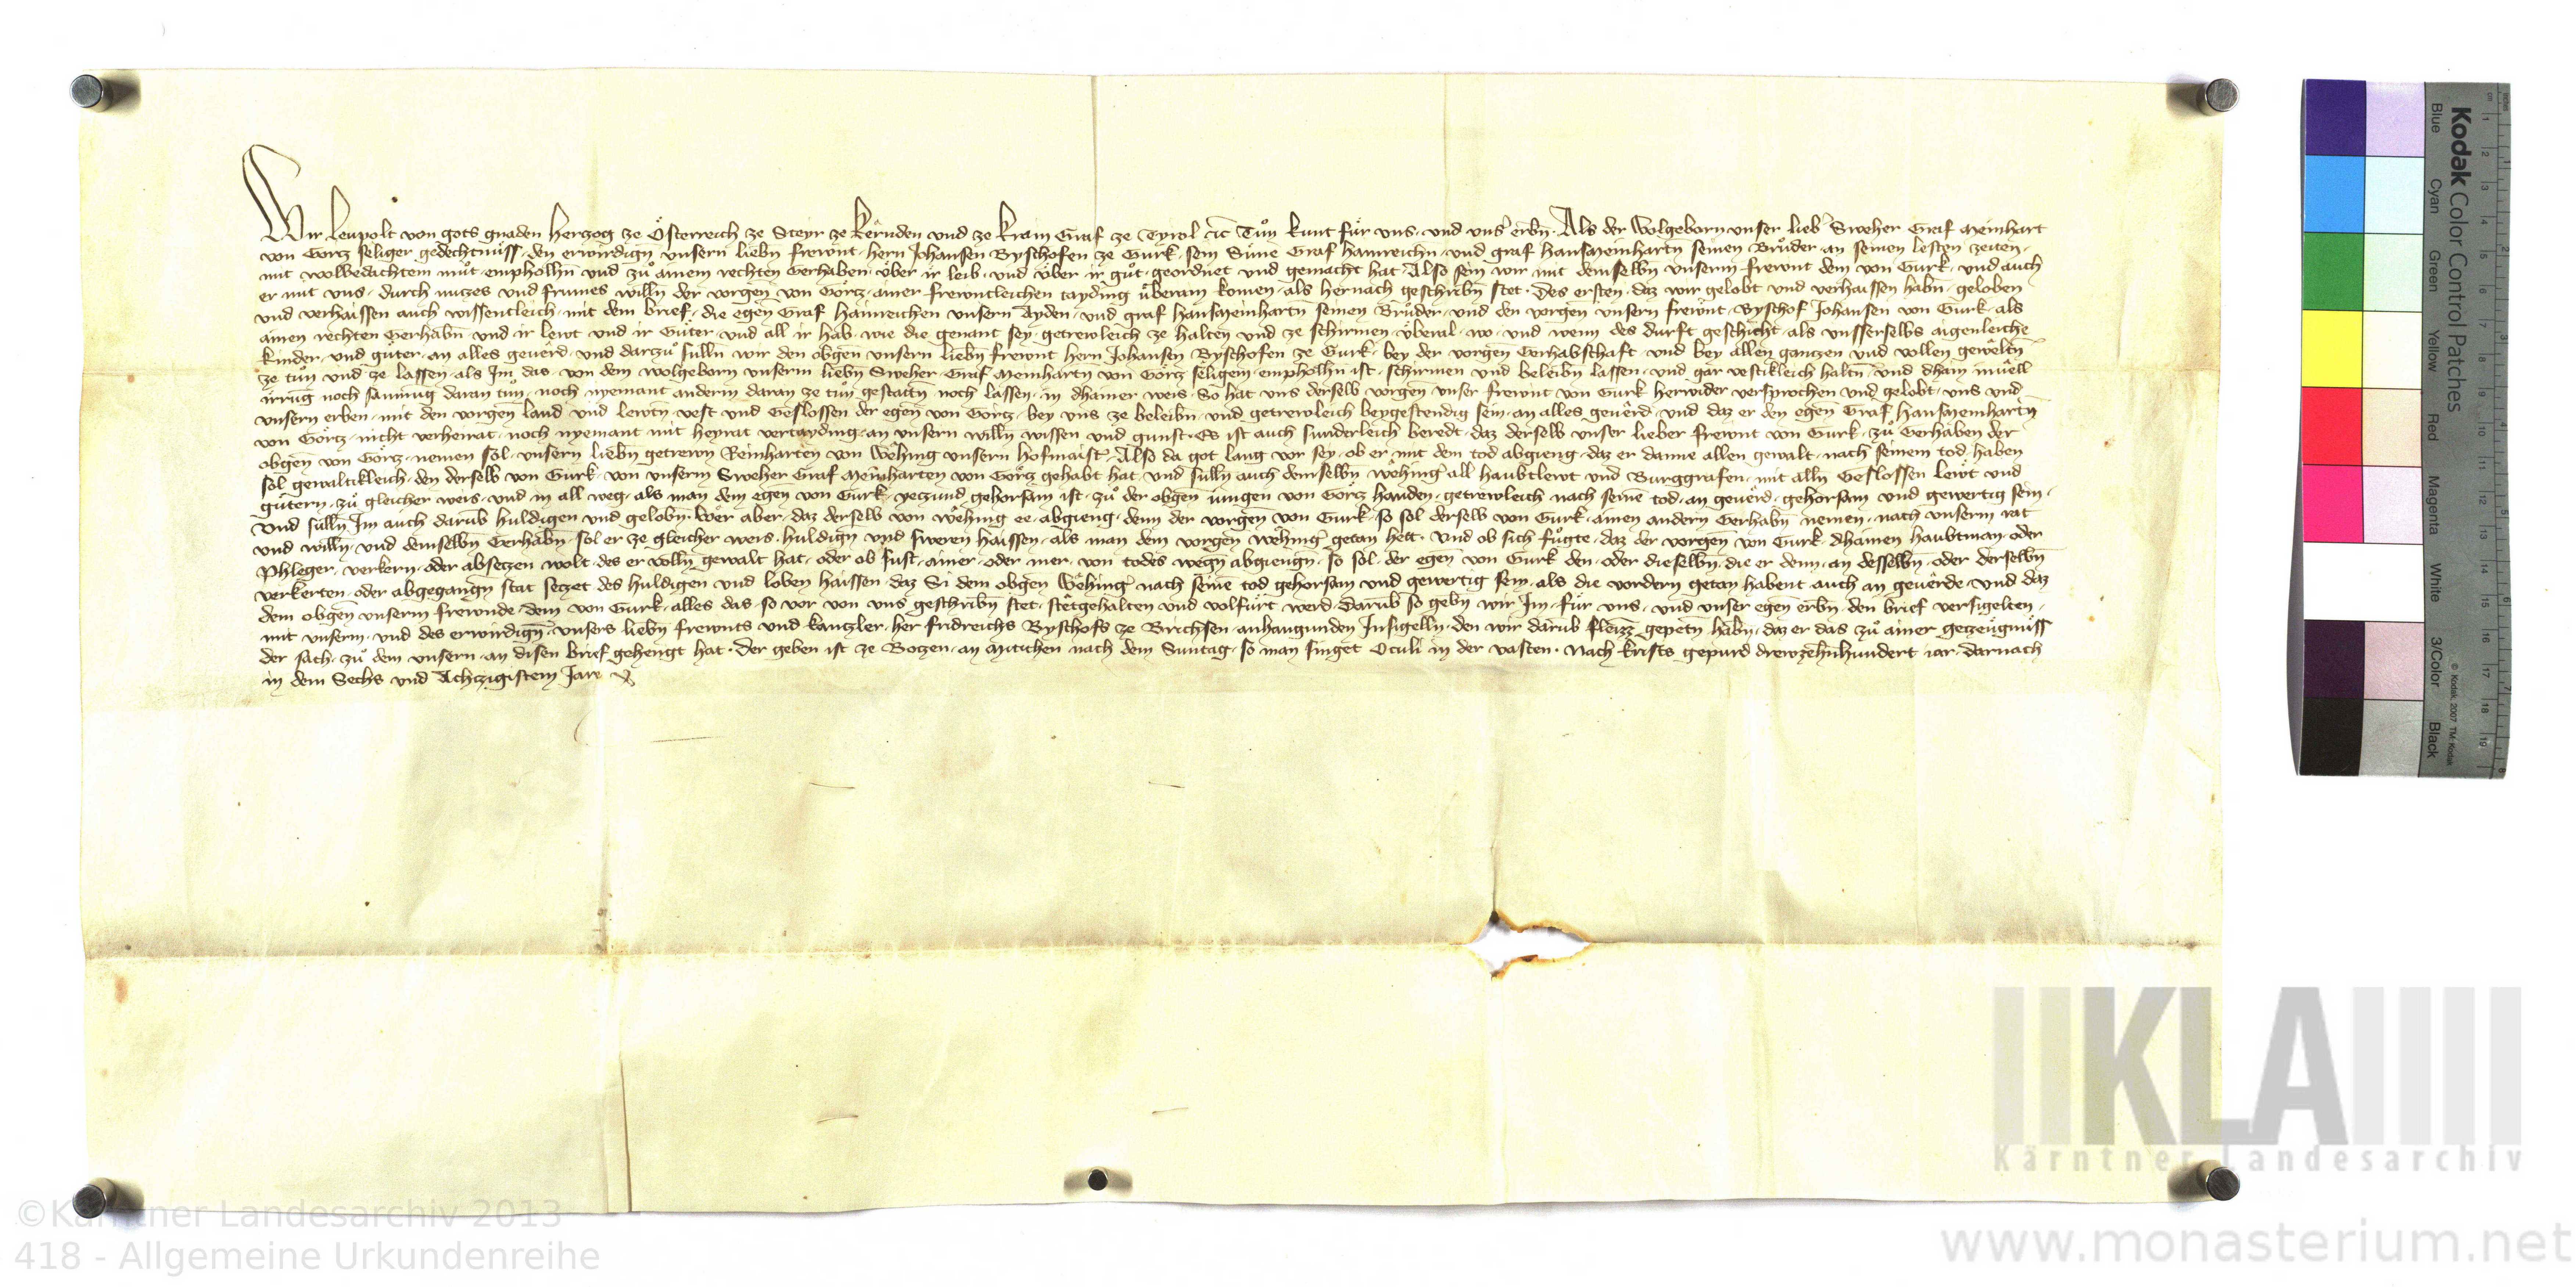 Wir Leupolt von gots gnaden Herzog ze Österreich ze Steyr ze Kernden und ze Krain Graf ze Tyrol etc Tůn kunt für uns und uns erbn. Als der Wolgeborn unser lieb Sweher Graf Meinhart
von Görtz seliger gedechtnüss, den erwirdign unsern liebn frewnt hern Johansen Byschofen ze Gurk, sein Süne Graf Hainreichn und graf Hansmeinhartn seinen Brůder an seinen lesten zeiten,
mit wolbedachtem můt emphollhn und zů ainem rechten Gerhaben über ir leib und über ir gůt geordnet und gemacht hat. Also sein wir mit demselbn unserm frewnt dem von Gurk und auch
er mit uns, durch nutzes und frumes willn der vorgen von Görtz ainer frewntleichen tayding überain komen, als hernach geschribn stet. Des ersten, daz wir gelobt und verhaissen habn, geloben
und verhaissen auch wissentleich mit dem brief, die egen Graf Hainreichen unsern Ayden, und graf Hansmeinhartn seinen Brůder, und den vorgen unsern frewnt Byschof Johansen von Gurk als
ainen rechten Gerhabn und ir lewt und ir Güter und all ir hab, wie die genant sey getrewleich ze halten und ze schirmen überal, wo und wenn des durft geschicht, als unsserselbs aigenleiche
kinder und güter, an alles geverd, und darzů sulln wir den obgen unsern liebn frewnt hern Johansen Byschofen ze Gurk, bey der vorgen Gerhabschaft, und bey allen gantzen und vollen gewêltn
ze tůn und ze lassen, als Im das von dem wolgeborn unserm liebn Sweher Graf Meinhartn von Görtz seligem emphollhn ist, schirmen und beleibn lassen, und gar vestikleich haltn, und dhain
irrung noch saumug daran tůn, noch nyemant anderm daran ze tůn gestattn noch lassen in dhainer weis. So hat uns derselb vorgen unser frewnt von Gurk herwider versprochen und gelobt, uns und
unsern erben, mit den vorgen land und lewtn vest und Geslossen der egen von Görtz, bey uns ze beleibn, und getrewleich beygestendig sein, an alles geverd, und daz er den egen Graf Hansmeinhartn
von Görtz nicht verheirat, noch nyemant mit heyrat vertayding, an unsern willn wissen und gunst. Es ist auch sunderleich beredt, daz derselb unser lieber frewnt von Gurk, zů Gerhaben der
obgen von Görtz, nemen sol, unsern liebn getrewn Reinharten von Wêhing unsern hofmaister. Also da got lang vor sey, ob er mit dem tod abgieng, daz er danne allen gewalt, nach seinem tod, haben
sol gewaltikleich, den derselb von Gurk von unserm Sweher Graf Meinharten von Görtz gehabt hat, und sulln auch demselbn Wêhinger all haubtlewt und Burggrafen, mit alln Geslossen lewt und
gütern, zů gleicher weis, und in all weg, als man dem egen von Gurk yeczund gehorsam ist, zů der obgen iungen von Görtz handen, getrewleich nach seine tod, an geverd, gehorsam und gewertig sein,
Und sulln Im auch darub huldigen und gelobn. Wêr aber, daz derselb von Wêhing ee abgieng, denn der vorgen von Gurk, so sol derselb von Gurk ainen andern Gerhabn nemen, nach unserm rat
und willn, und demselbn Gerhabn sol er ze gleicher weis huldign und sweren haissen, als man dem vorgen Wêhinger getan hett. Und ob sich fůgte, daz der vorgen von Gurk dhainen haubtman, oder
Phleger, verkern, oder absetzen wolt, des er volln gewalt hat, oder ob sust ainer, oder mer, von todes wegn abgiengn, so sol der egen von Gurk den, oder dieselbn, die er denn an desselbn, oder derselbn
verkerten, oder abgegangn stat setzet des huldigen und loben haissen, daz Si dem obgen Wêhinger nach seine tod gehorsam und gewertig sein, als die vordern getan habent auch an geverde, und daz
dem obgen unserm frewnde dem von Gurk, alles das, so vor von uns geschribn stet, stêtgehalten und volfürt werd, Darub so gebn wir Im, für uns, und unser egen erbn, den brief versigelten,
mit unserm, und des erwirdign, unsers liebn frewnts und kantzler, her Fridreichs Byschofs ze Brichsen anhangunden Insigelln, den wir darub fleizz gepetn habn, daz er das zů ainer getzeügnüss
der sach, zů dem unsern, an disen brief gehengt hat. Der geben ist ze Botzen, an Mittichen nach dem Suntag, so man singet Oculi in der vasten. Nach krists gepurd drewzehnhundert iar, darnach
in dem Sechs und Achtzigistem Jare
Kodak Color Control Patches
Blue Cyan Green Yellow Red Magenta White 3/Color Black
© Kodak, 2007 TM: Kodak
KLA
Kärntner Landesarchiv
©Kärntner Landesarchiv 2013
418 - Allgemeine Urkundenreihe
www.monasterium.net